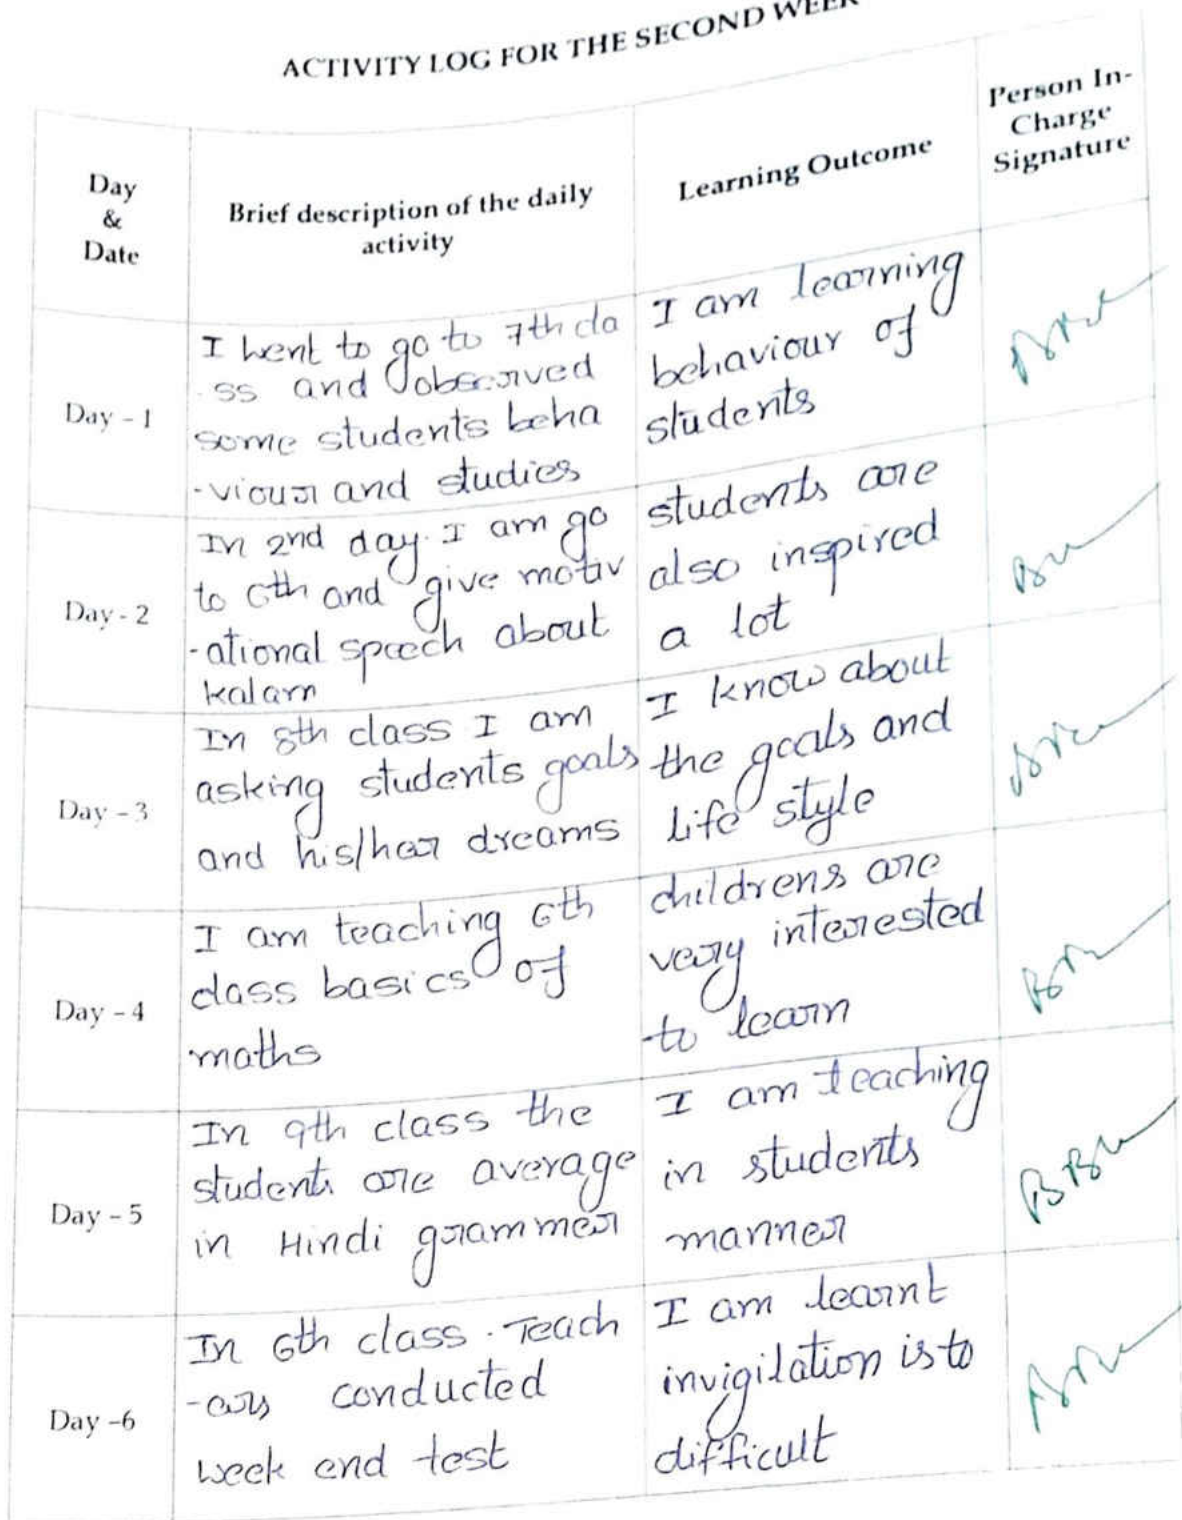 ACTIVITY LOG FOR THE SECOND WEEK
Day
&
Date
Brief description of the daily
activity
Learning Outcome
Person In-
Charge
Signature
Day - 1
I went to go to 7th cla
-ss and observed
some students beha
-viour and studies
I am learning
behaviour of
students
Day - 2
In 2nd day. I am go
to 6th and give motiv
-ational speech about
kalam
students are
also inspired
a lot
Day - 3
In 8th class I am
asking students goals
and his/her dreams
I know about
the goals and
life style
Day - 4
I am teaching 6th
class basics of
maths
childrens are
very interested
to learn
Day - 5
In 9th class the
students are average
in Hindi grammer
I am teaching
in students
manner
Day -6
In 6th class. Teach
-ers conducted
week end test
I am learnt
invigilation is to
difficult